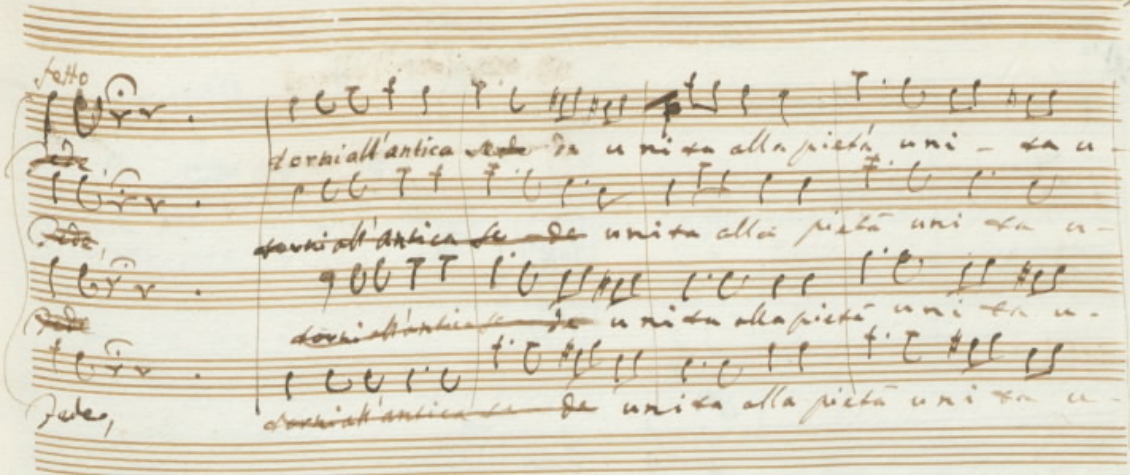 torni all'antica sede da unita alla pietà uni - ta u -
torni all'antica se - de unita alla pietà uni ta u -
torni all'antica se - de unita alla pietà uni ta u -
fede, torni all'antica se - de unita alla pietà uni ta u -